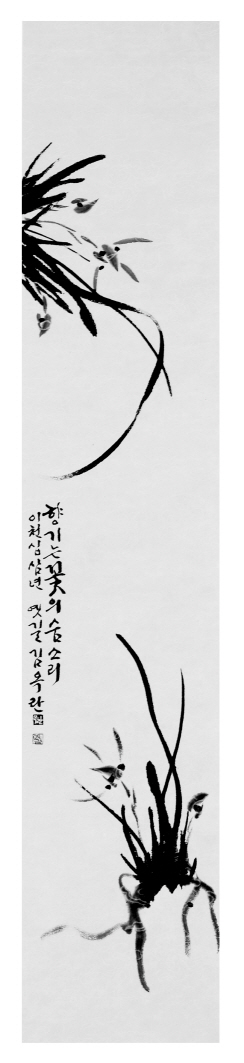 향기는 꽃의 숨소리
이천십삼년 옛길 김옥란